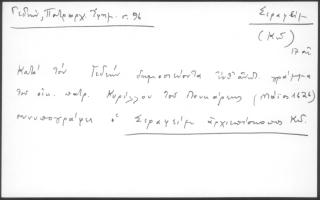 Γεδεών, Πατριαρχ. Ἐφημ. σ. 96
Σεραφείμ
(Κω)
17 αι
Κατά τον Γεδεών δημοσιεύοντα γράμμα
του οικ. πατρ. Κυρίλλου του Λουκάρεως (Μάϊος 1626)
συνυπογράφει ὁ Σεραφείμ ἀρχιεπίσκοπος Κω.